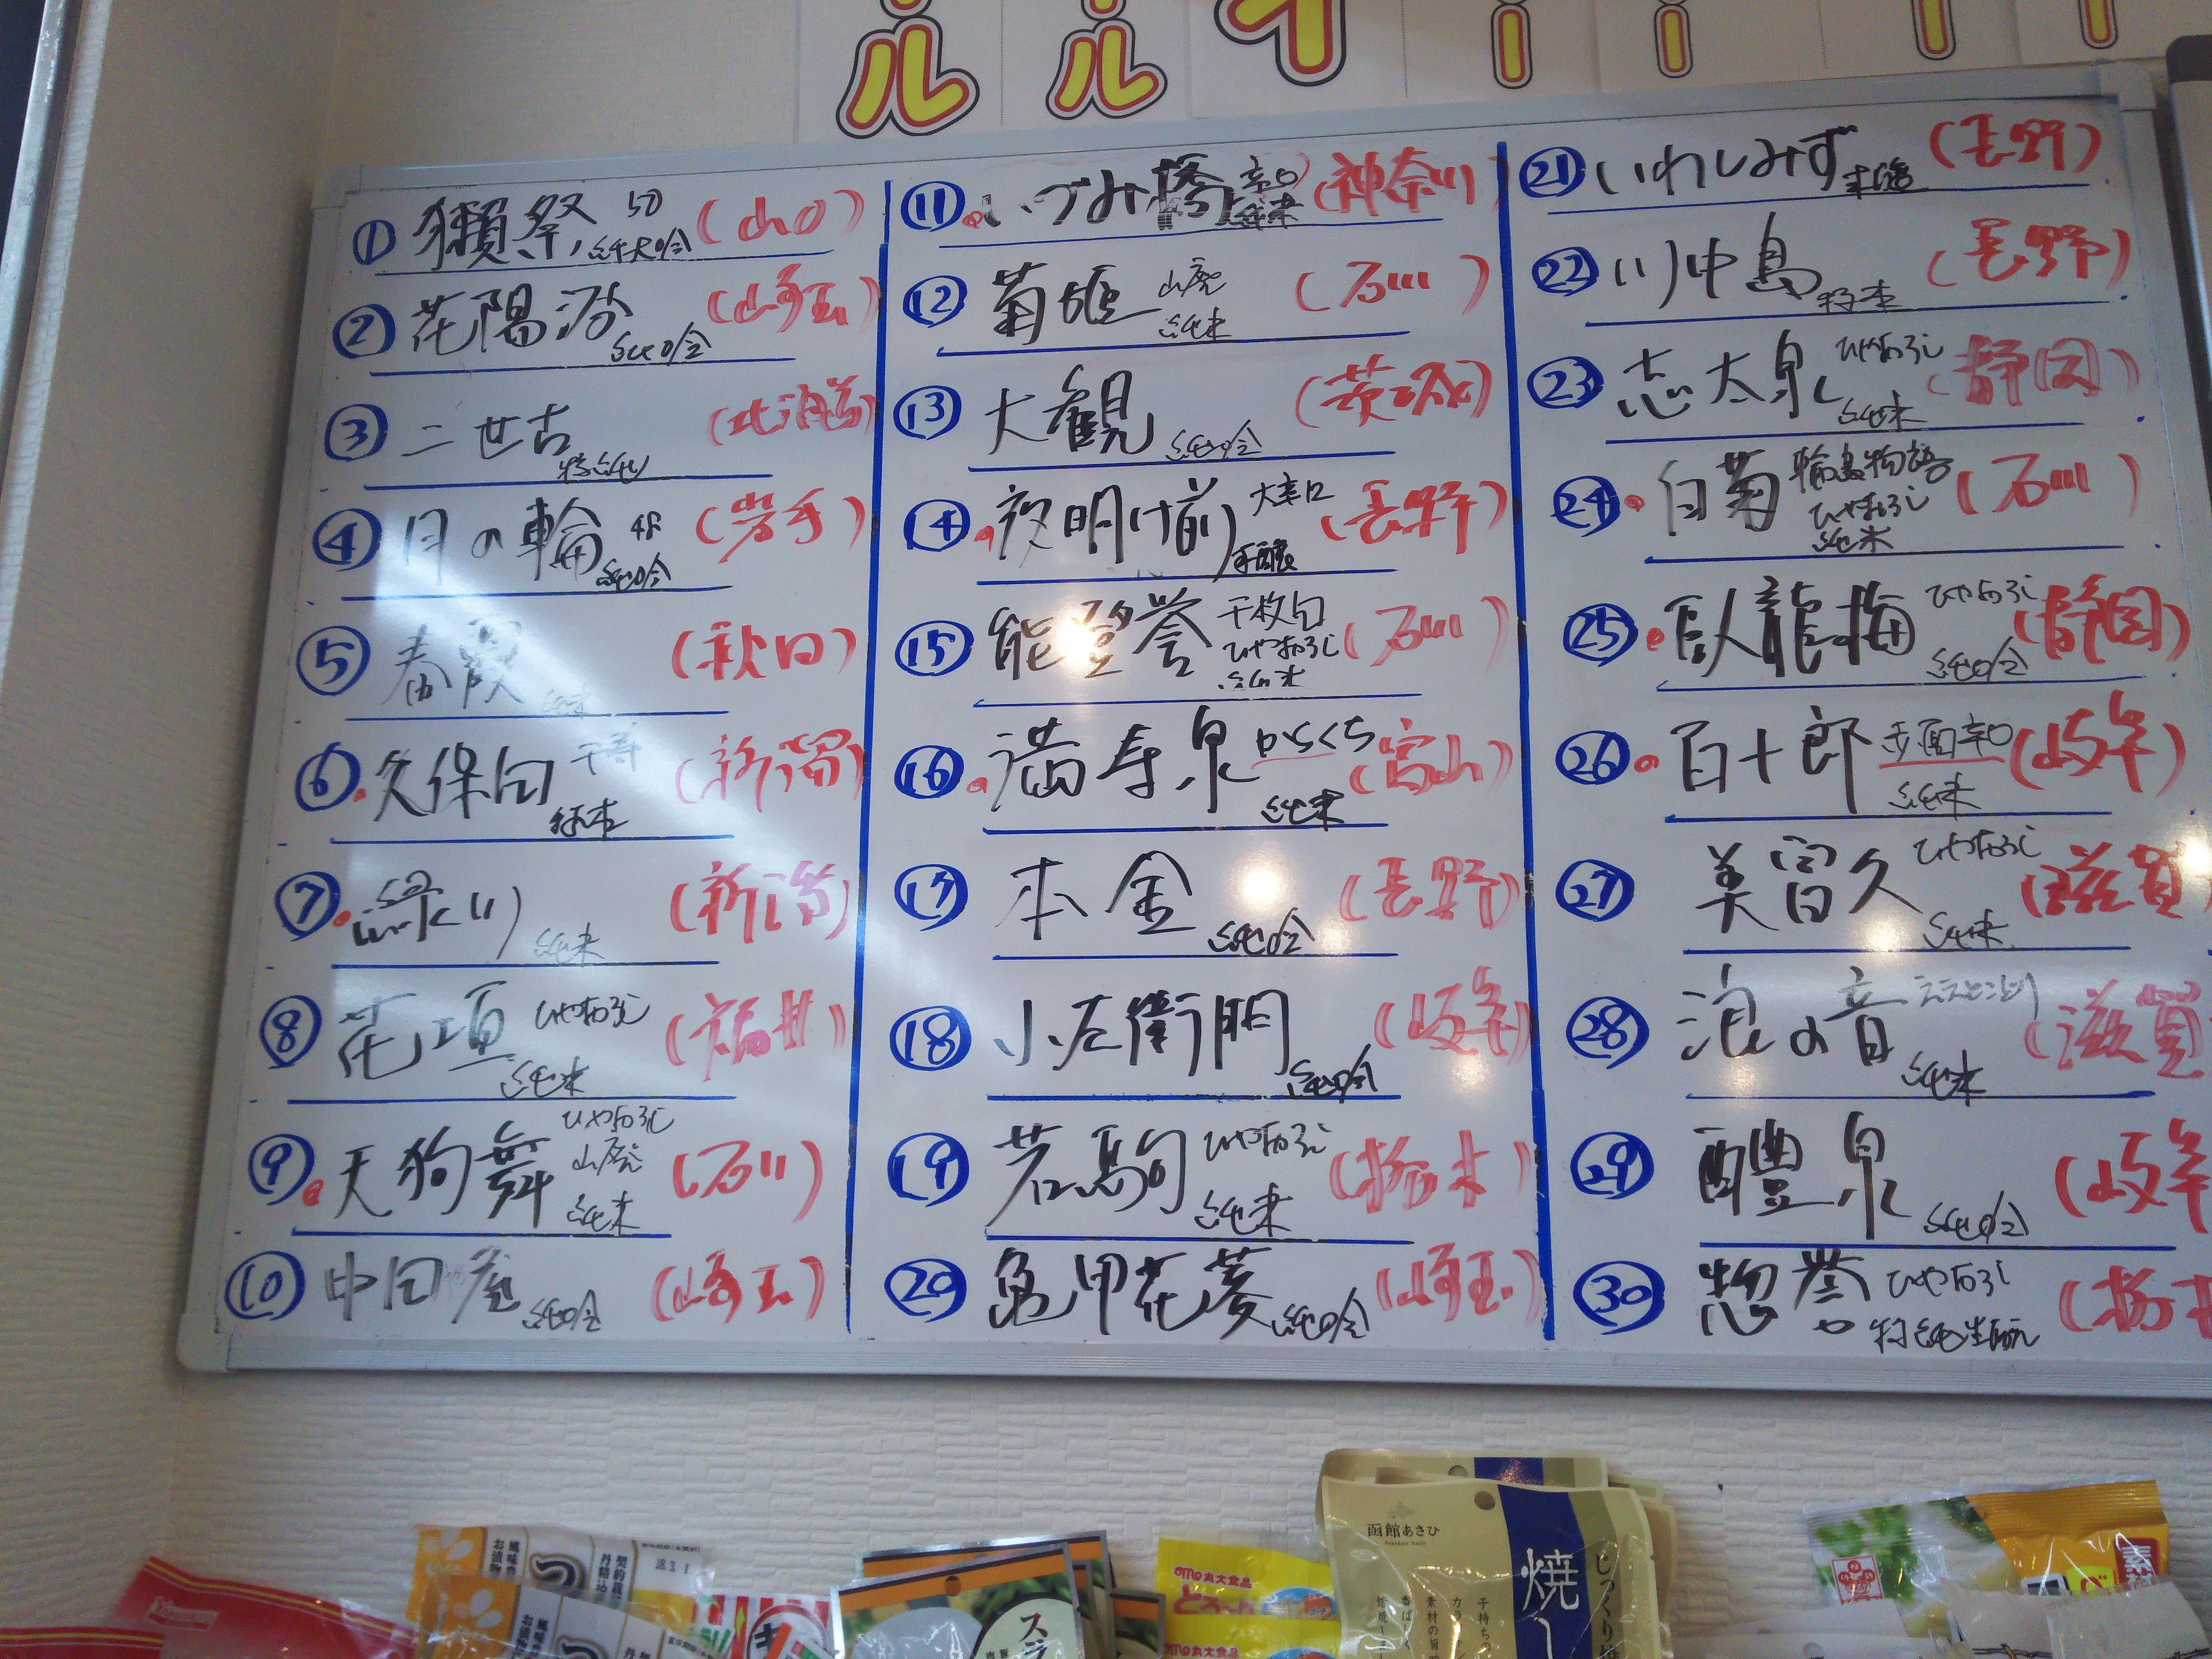 ル
ル
イ
ー
ー
① 獺祭 50 純大吟 (山口)
② 花陽浴 純吟 (埼玉)
③ 二世古 特純 (北海道)
④ 月の輪 純吟 (岩手)
⑤ 春霞 純米 (秋田)
⑥ 久保田 千寿 (新潟)
⑦ 緑川 純米 (新潟)
⑧ 花垣 ひやおろし 純米 (福井)
⑨ 天狗舞 ひやおろし 山廃 純米 (石川)
⑩ 中田屋 純吟 (埼玉)
⑪ いづみ橋 辛口 純米 (神奈川)
⑫ 菊姫 山廃 純米 (石川)
⑬ 大観 純吟 (茨城)
⑭ 夜明け前 大辛口 (長野)
⑮ 能登誉 千枚田 ひやおろし 純米 (石川)
⑯ 満寿泉 からくち 純米 (富山)
⑰ 本金 純吟 (長野)
⑱ 小左衛門 純吟 (岐阜)
⑲ 若駒 ひやおろし 純米 (栃木)
⑳ 亀甲花菱 純吟 (埼玉)
㉑ いわしみず (長野)
㉒ 川中島 特本 (長野)
㉓ 志太泉 ひやおろし 純米 (静岡)
㉔ 白菊 輪島物語 ひやおろし 純米 (石川)
㉕ 臥龍梅 ひやおろし 純吟 (静岡)
㉖ 百十郎 赤面辛口 純米 (岐阜)
㉗ 美冨久 ひやおろし 純米 (滋賀
㉘ 浪の音 ええとこどり 純米 (滋賀
㉙ 醴泉 純吟 (岐阜
㉚ 惣誉 ひやおろし 特純生酛 (栃木
函館あさひ
焼
じっくり
丸大食品
スラ